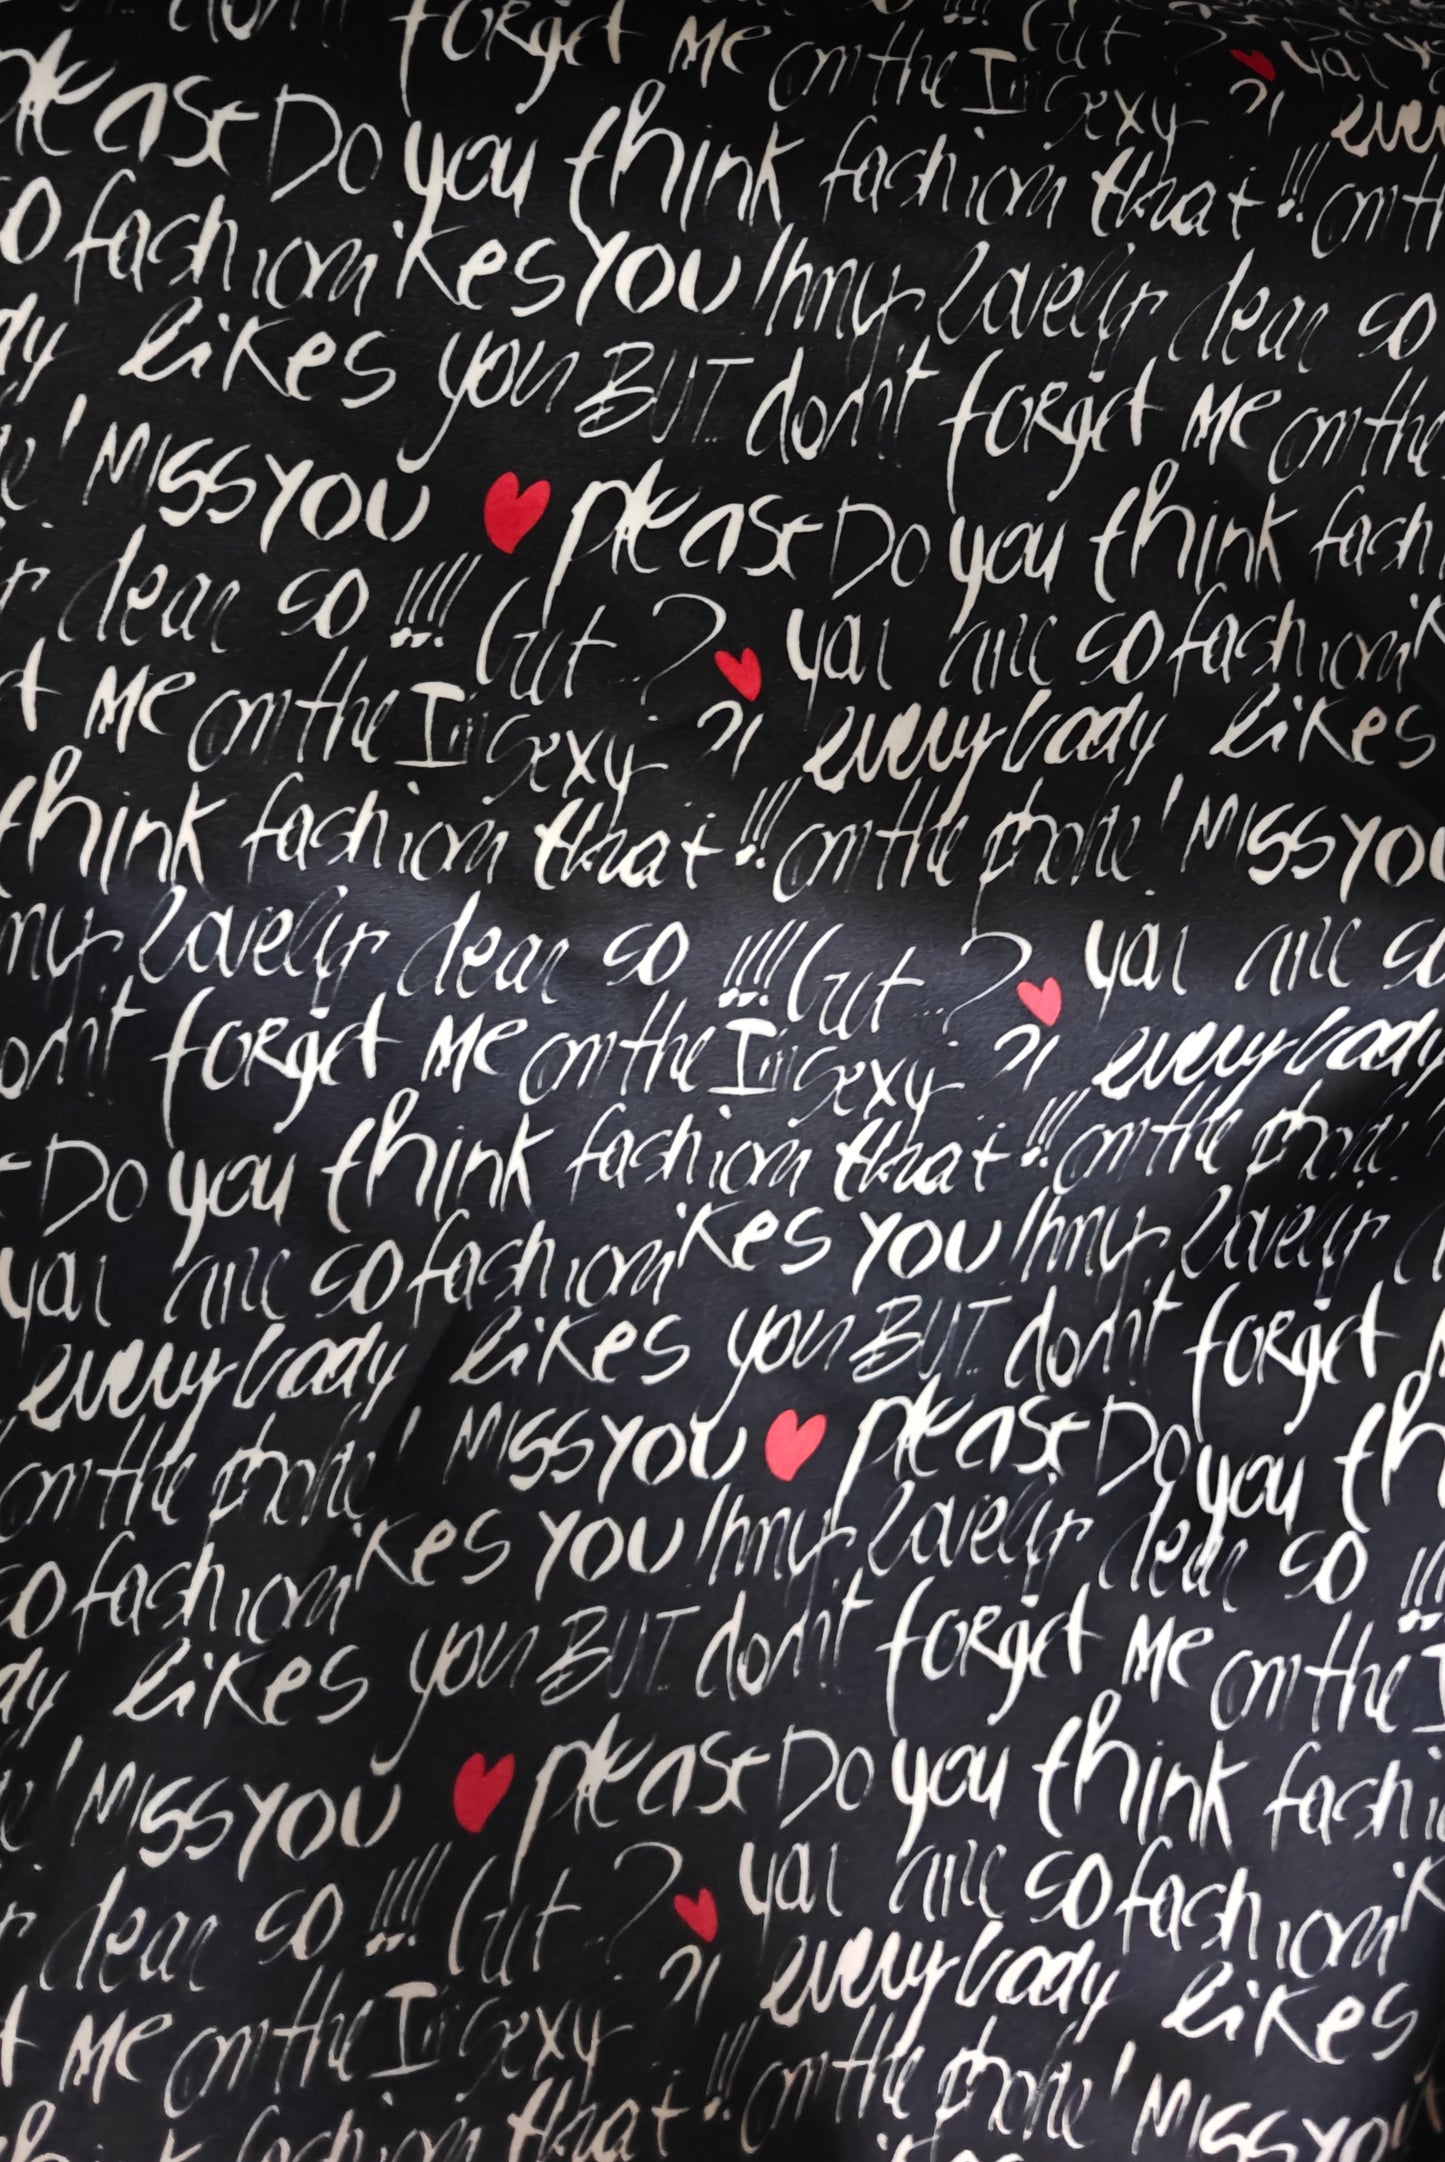 don't forget Me on the I'm sexy
please Do you think fashion that!!! on th
so fashion ikes you !hmy lovely dear so
dy likes you BUT don't forget Me on the
Miss you ♥ please Do you think fash
dear so !!!! Cut..? ♥ you are so fashion
Me on the I'm sexy ?! everybody likes
think fashion that!!! on the phone! Miss you
my lovely dear so !!!! Cut..? ♥ you are so
don't forget Me on the I'm sexy ?! everybody
Do you think fashion that!!! on the phone!
you are so fashion ikes you !hmy lovely
everybody likes you BUT don't forget
on the phone! Miss you ♥ please Do you th
so fashion ikes you !hmy lovely dear so !!!
dy likes you BUT don't forget Me on the I
! Miss you ♥ please Do you think fashi
dear so !!!! Cut..? ♥ you are so fashion
Me on the I'm sexy ?! everybody likes
think fashion that!!! on the phone! Miss you